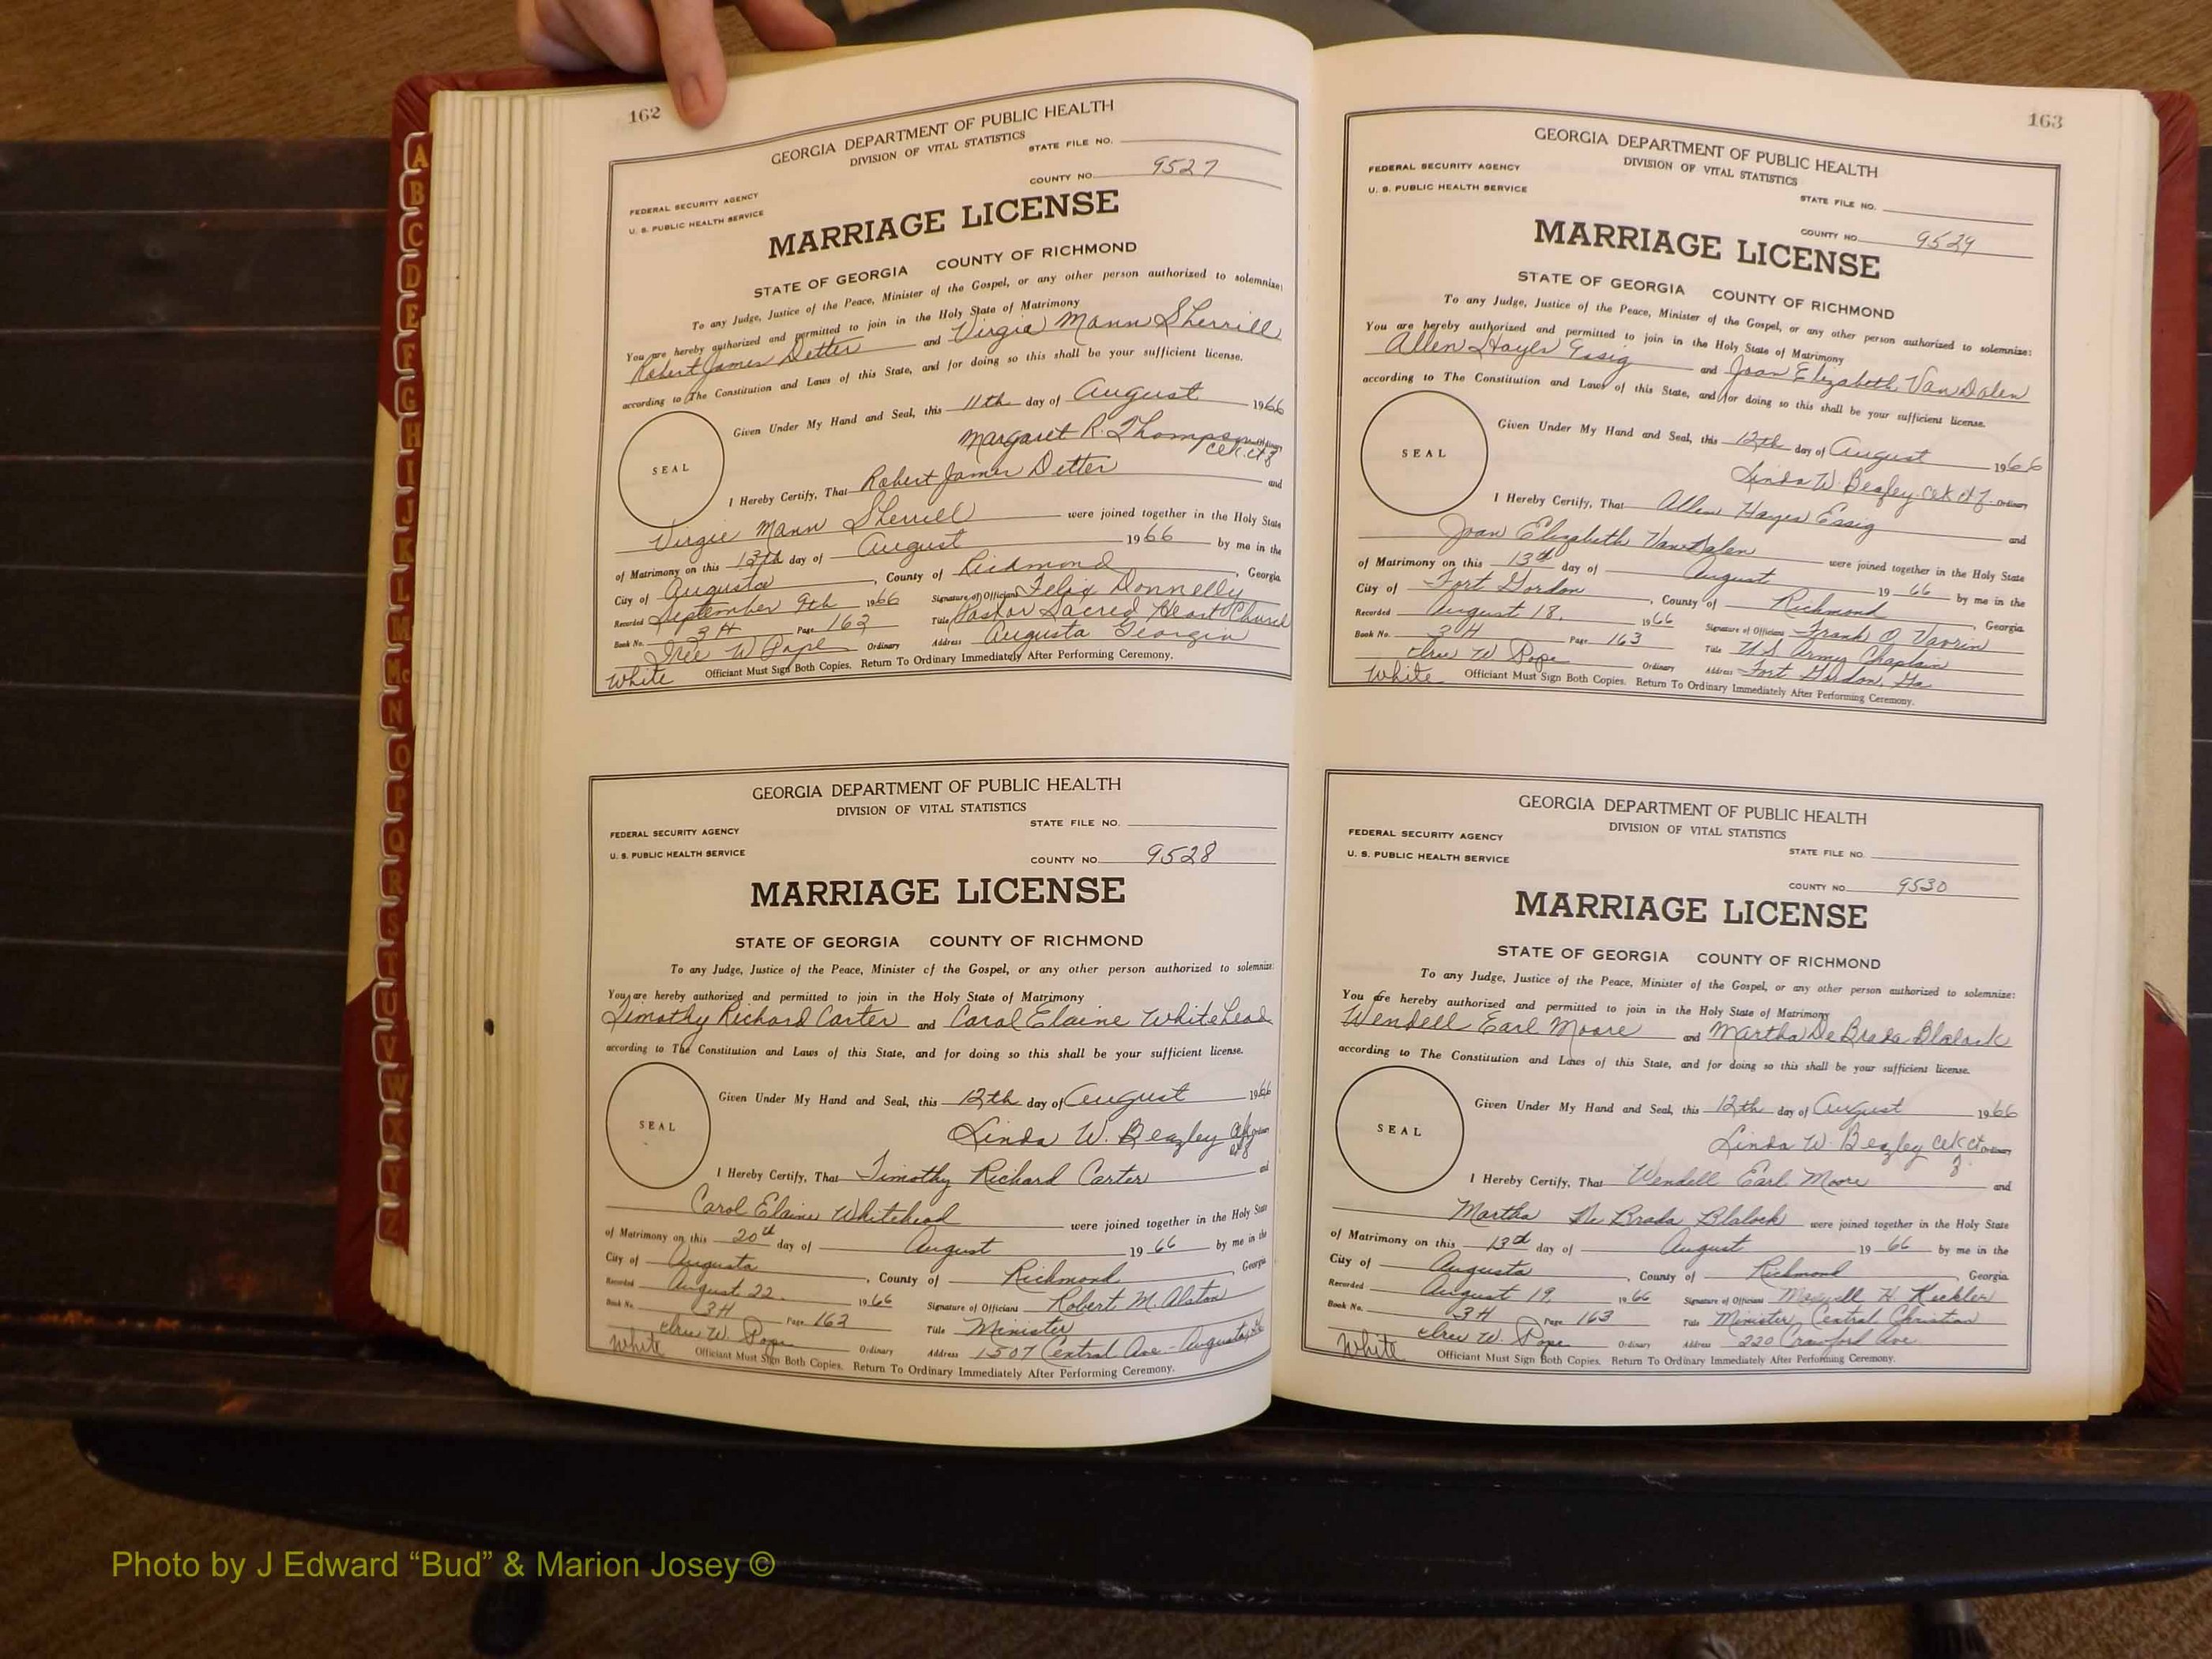 162
GEORGIA DEPARTMENT OF PUBLIC HEALTH
DIVISION OF VITAL STATISTICS
STATE FILE NO.
FEDERAL SECURITY AGENCY
COUNTY NO. 9527
U. S. PUBLIC HEALTH SERVICE
MARRIAGE LICENSE
STATE OF GEORGIA COUNTY OF RICHMOND
To any Judge, Justice of the Peace, Minister of the Gospel, or any other person authorized to solemnize:
You are hereby authorized and permitted to join in the Holy State of Matrimony
Robert James Detter and Virgie Mann Sherrill
according to The Constitution and Laws of this State, and for doing so this shall be your sufficient license.
Given Under My Hand and Seal, this 11th day of August 1966
Margaret R. Thompson
SEAL
I Hereby Certify, That Robert James Detter and
Virgie Mann Sherrill were joined together in the Holy State
of Matrimony on this 13th day of August 1966 by me in the
City of Augusta, County of Richmond, Georgia
Recorded September 9th 1966 Signature of Officiant Felix Donnelly
Book No. 3H Page 162 Title Pastor Sacred Heart Church
Ordinary Address Augusta Georgia
White Officiant Must Sign Both Copies. Return To Ordinary Immediately After Performing Ceremony.
GEORGIA DEPARTMENT OF PUBLIC HEALTH
DIVISION OF VITAL STATISTICS
STATE FILE NO.
FEDERAL SECURITY AGENCY
U. S. PUBLIC HEALTH SERVICE
COUNTY NO. 9528
MARRIAGE LICENSE
STATE OF GEORGIA COUNTY OF RICHMOND
To any Judge, Justice of the Peace, Minister of the Gospel, or any other person authorized to solemnize:
You are hereby authorized and permitted to join in the Holy State of Matrimony
Timothy Richard Carter and Carol Elaine Whitehead
according to The Constitution and Laws of this State, and for doing so this shall be your sufficient license.
Given Under My Hand and Seal, this 12th day of August 1966
SEAL
Linda W. Beazley Ordinary
I Hereby Certify, That Timothy Richard Carter and
Carol Elaine Whitehead were joined together in the Holy State
of Matrimony on this 20th day of August 1966 by me in the
City of Augusta, County of Richmond, Georgia
Recorded August 22. 1966 Signature of Officiant Robert M. Alston
Book No. 3H Page 162 Title Minister
W. Pope Ordinary Address 1507 Central Ave - Augusta, Ga
White Officiant Must Sign Both Copies. Return To Ordinary Immediately After Performing Ceremony.
163
GEORGIA DEPARTMENT OF PUBLIC HEALTH
DIVISION OF VITAL STATISTICS
FEDERAL SECURITY AGENCY
U. S. PUBLIC HEALTH SERVICE
STATE FILE NO.
COUNTY NO. 9529
MARRIAGE LICENSE
STATE OF GEORGIA COUNTY OF RICHMOND
To any Judge, Justice of the Peace, Minister of the Gospel, or any other person authorized to solemnize:
You are hereby authorized and permitted to join in the Holy State of Matrimony
Allen Hayes Essig and Joan Elizabeth VanDalen
according to The Constitution and Laws of this State, and for doing so this shall be your sufficient license.
Given Under My Hand and Seal, this 12th day of August 1966
SEAL
Linda W. Beazley Ordinary
I Hereby Certify, That Allen Hayes Essig and
Joan Elizabeth VanDalen were joined together in the Holy State
of Matrimony on this 13th day of August 1966 by me in the
City of Fort Gordon, County of Richmond, Georgia
Recorded August 18, 1966 Signature of Officiant Frank O.
Book No. 3H Page 163 Title U S Army Chaplain
W. Pope Ordinary Address Fort Gordon, Ga
White Officiant Must Sign Both Copies. Return To Ordinary Immediately After Performing Ceremony.
GEORGIA DEPARTMENT OF PUBLIC HEALTH
DIVISION OF VITAL STATISTICS
FEDERAL SECURITY AGENCY
U. S. PUBLIC HEALTH SERVICE
STATE FILE NO.
COUNTY NO. 9530
MARRIAGE LICENSE
STATE OF GEORGIA COUNTY OF RICHMOND
To any Judge, Justice of the Peace, Minister of the Gospel, or any other person authorized to solemnize:
You are hereby authorized and permitted to join in the Holy State of Matrimony
Wendell Earl Moore and Martha De Brada Blalock
according to The Constitution and Laws of this State, and for doing so this shall be your sufficient license.
Given Under My Hand and Seal, this 12th day of August 1966
SEAL
Linda W. Beazley Ordinary
I Hereby Certify, That Wendell Earl Moore and
Martha De Brada Blalock were joined together in the Holy State
of Matrimony on this 13th day of August 1966 by me in the
City of Augusta, County of Richmond, Georgia
Recorded August 19, 1966 Signature of Officiant H. Keckler
Book No. 3H Page 163 Title Minister Central Christian
W. Pope Ordinary Address 220 Crawford Ave.
White Officiant Must Sign Both Copies. Return To Ordinary Immediately After Performing Ceremony.
A
B
C
D
E
F
G
H
I
J
K
L
M
Mc
N
O
P
Q
R
S
T
U
V
W
X
Y
Z
Photo by J Edward “Bud” & Marion Josey ©